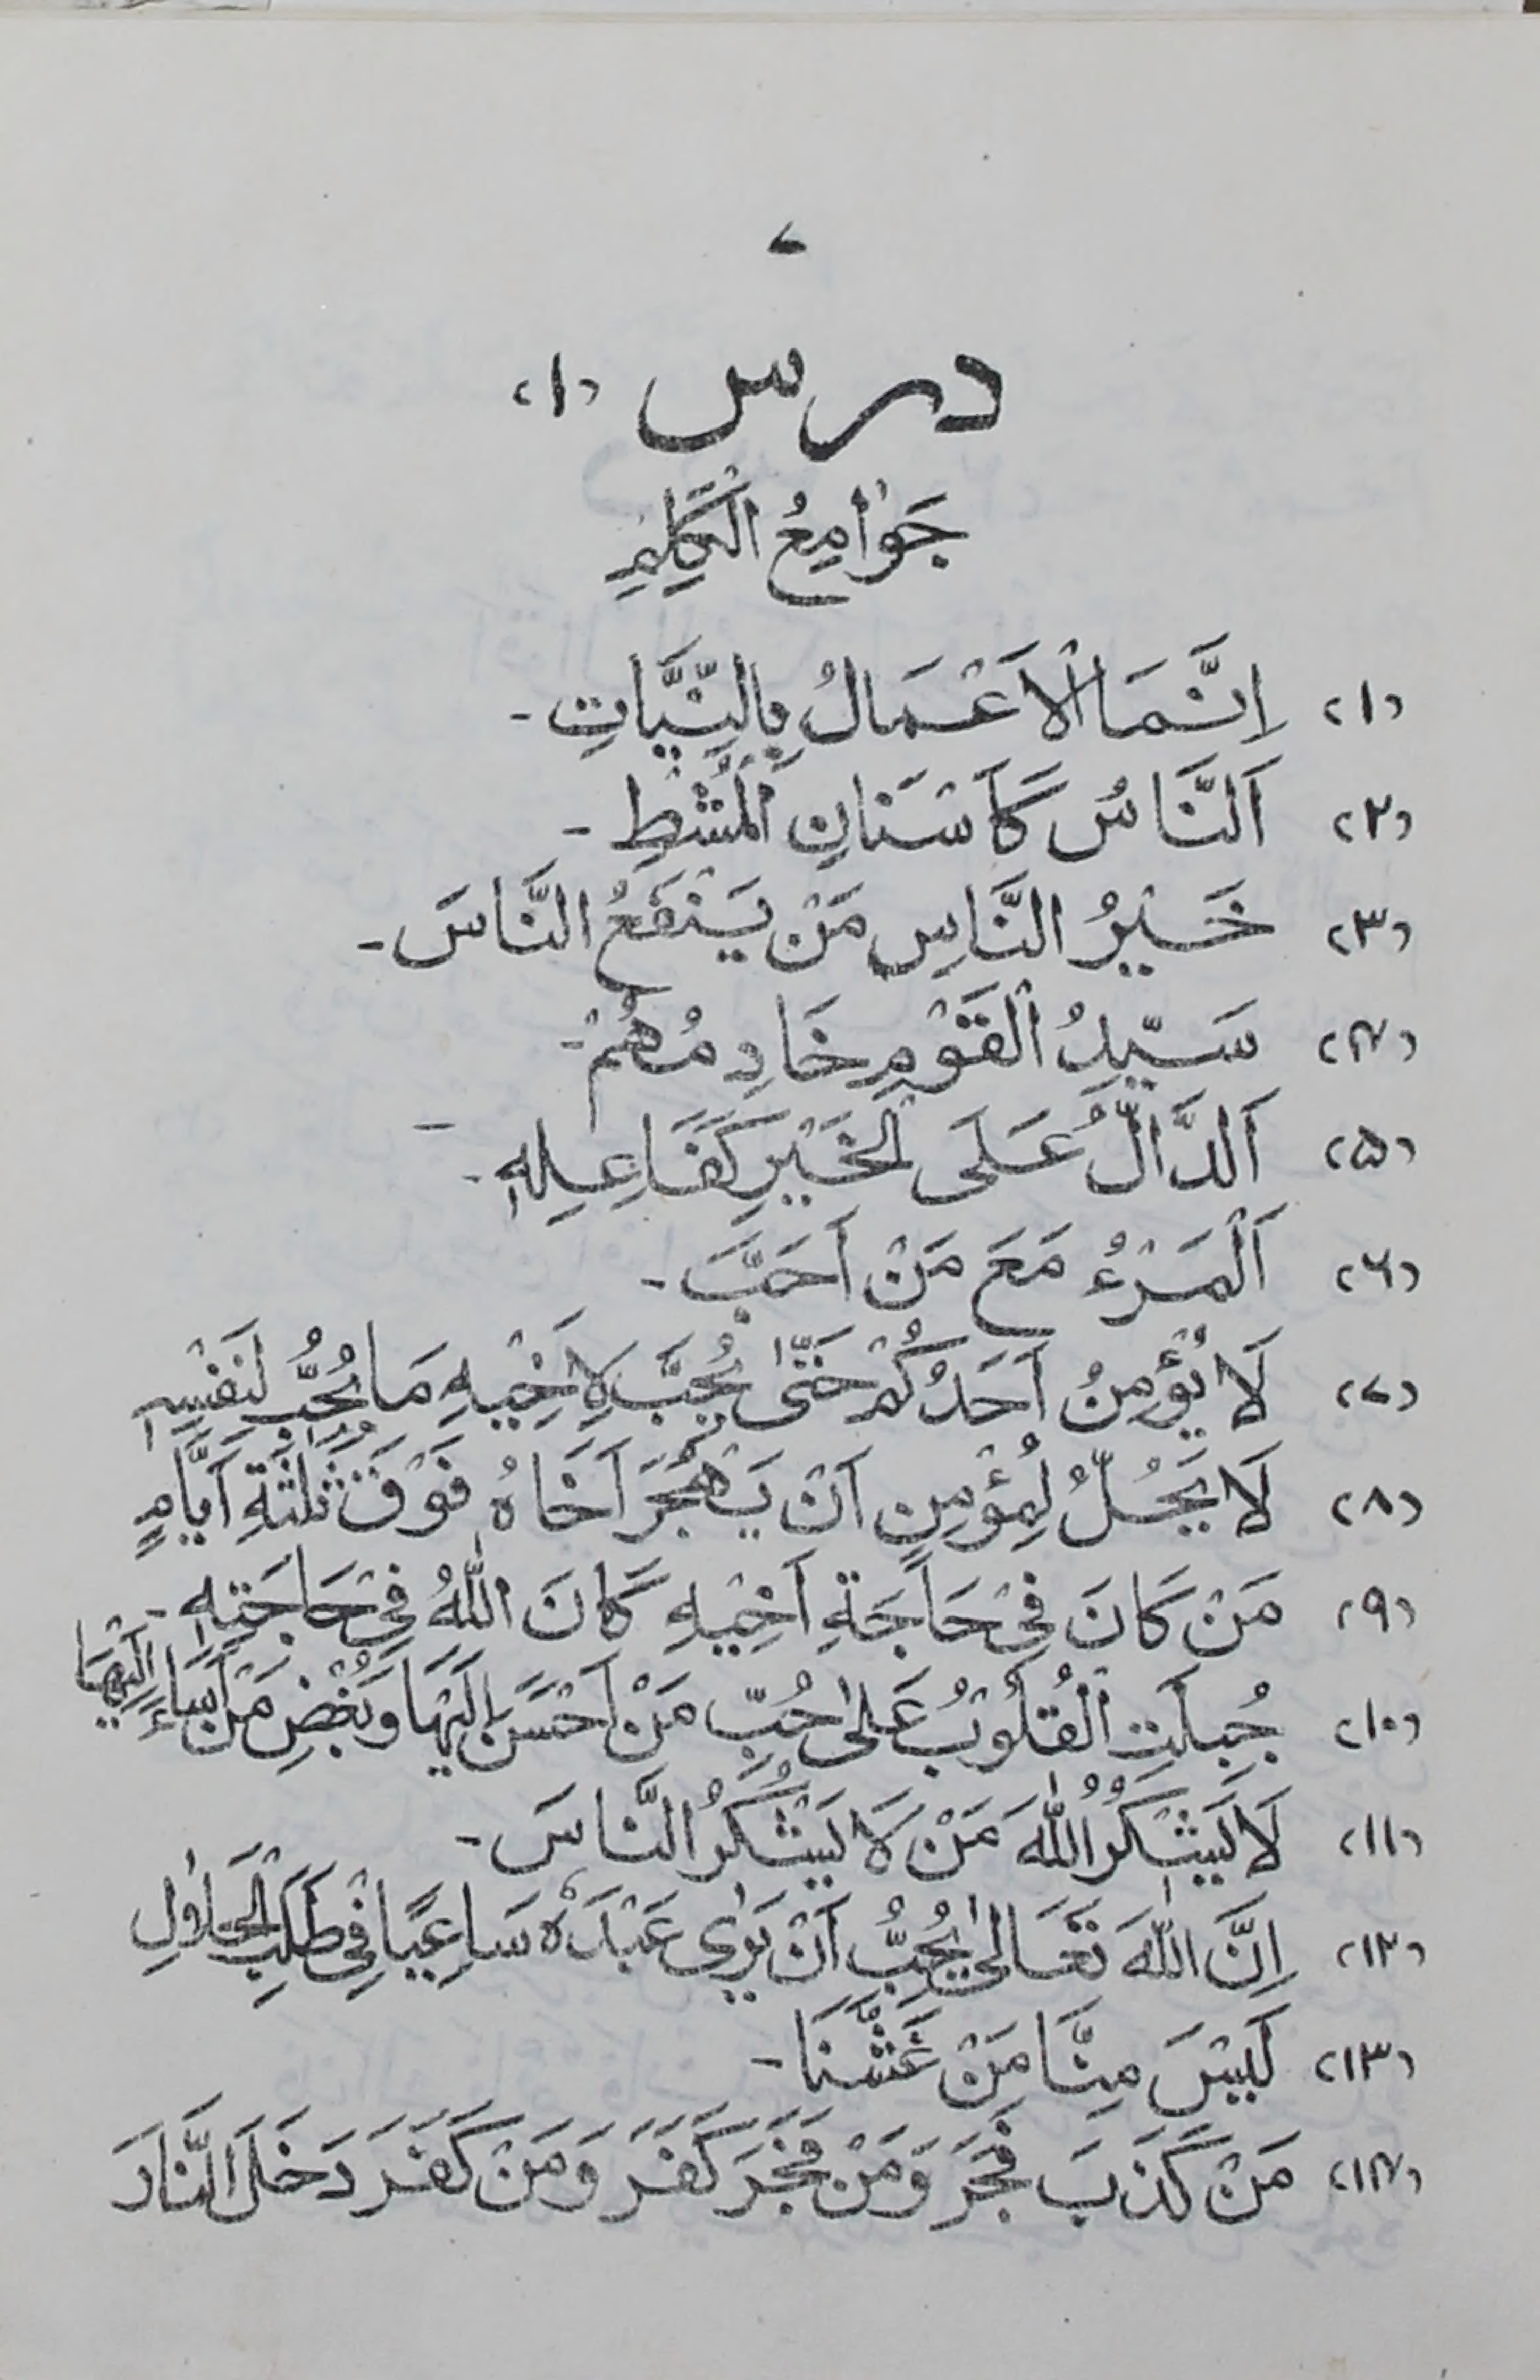 ۷
درس (۱)
جَوَامِعُ الْكَلِمِ
(۱) اِنَّمَا الْاَعْمَالُ بِالنِّيَّاتِ -
(۲) اَلنَّاسُ كَاَسْنَانِ الْمُشْطِ -
(۳) خَيْرُ النَّاسِ مَنْ يَنْفَعُ النَّاسَ -
(۴) سَيِّدُ الْقَوْمِ خَادِمُهُمْ -
(۵) اَلدَّالُّ عَلَى الْخَيْرِ كَفَاعِلِهٖ -
(۶) اَلْمَرْءُ مَعَ مَنْ اَحَبَّ -
(۷) لَا يُؤْمِنُ اَحَدُكُمْ حَتّٰى يُحِبَّ لِاَخِيْهِ مَا يُحِبُّ لِنَفْسِهٖ
(۸) لَا يَحِلُّ لِمُؤْمِنٍ اَنْ يَهْجُرَ اَخَاهُ فَوْقَ ثَلٰثَةِ اَيَّامٍ
(۹) مَنْ كَانَ فِيْ حَاجَةِ اَخِيْهِ كَانَ اللّٰهُ فِيْ حَاجَتِهٖ -
(۱۰) جُبِلَتِ الْقُلُوْبُ عَلٰى حُبِّ مَنْ اَحْسَنَ اِلَيْهَا وَبُغْضِ مَنْ اَسَاءَ اِلَيْهَا
(۱۱) لَا يَشْكُرُ اللّٰهَ مَنْ لَا يَشْكُرُ النَّاسَ -
(۱۲) اِنَّ اللّٰهَ تَعَالٰى يُحِبُّ اَنْ يَرٰى عَبْدَهٗ سَاعِيًا فِيْ طَلَبِ الْحَلَالِ
(۱۳) لَيْسَ مِنَّا مَنْ غَشَّنَا -
(۱۴) مَنْ كَذَبَ فَجَرَ وَمَنْ فَجَرَ كَفَرَ وَمَنْ كَفَرَ دَخَلَ النَّارَ